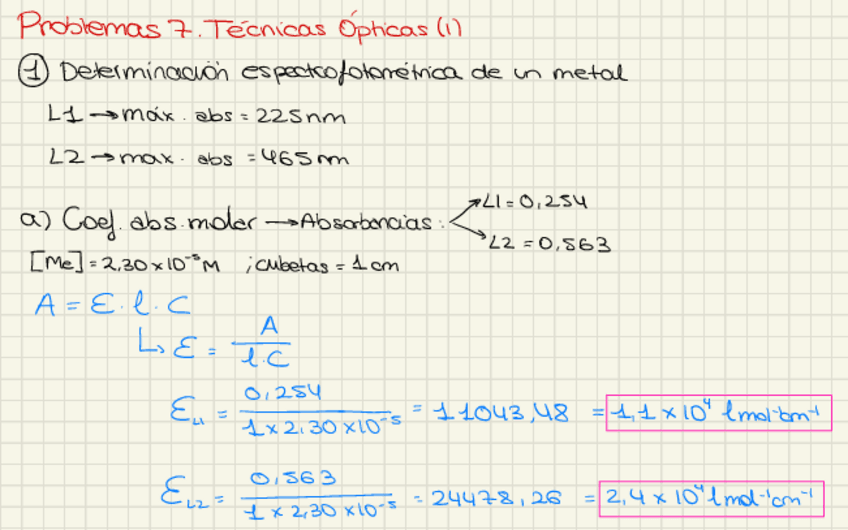 Problemas 7. Técnicas Ópticas (1)
① Determinación espectrofotométrica de un metal
L1 → máx. abs = 225nm
L2 → max. abs = 465nm
a) Coef. abs. molar → Absorbancias: L1 = 0,254
L2 = 0,563
[Me] = 2,30 x 10⁻⁵M ; cubetas = 1 cm
A = ε · l · C
↳ ε = A / l · C
ε_L1 = 0,254 / 1 x 2,30 x 10⁻⁵ = 11043,48 = 1,1 x 10⁴ l mol⁻¹cm⁻¹
ε_L2 = 0,563 / 1 x 2,30 x 10⁻⁵ = 24478,26 = 2,4 x 10⁴ l mol⁻¹cm⁻¹